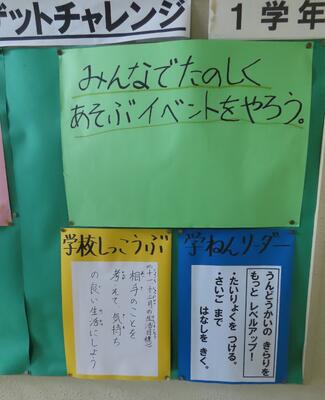 ゲットチャレンジ
1学年
みんなでたのしく
あそぶイベントをやろう。
学校しっこうぶ
相手のことを
考えて、気持ち
の良い生活にしよう
学ねんリーダー
うんどうかいの きらりを
もっと レベルアップ！
・たいりょくを つける。
・さいご まで
はなしを きく。